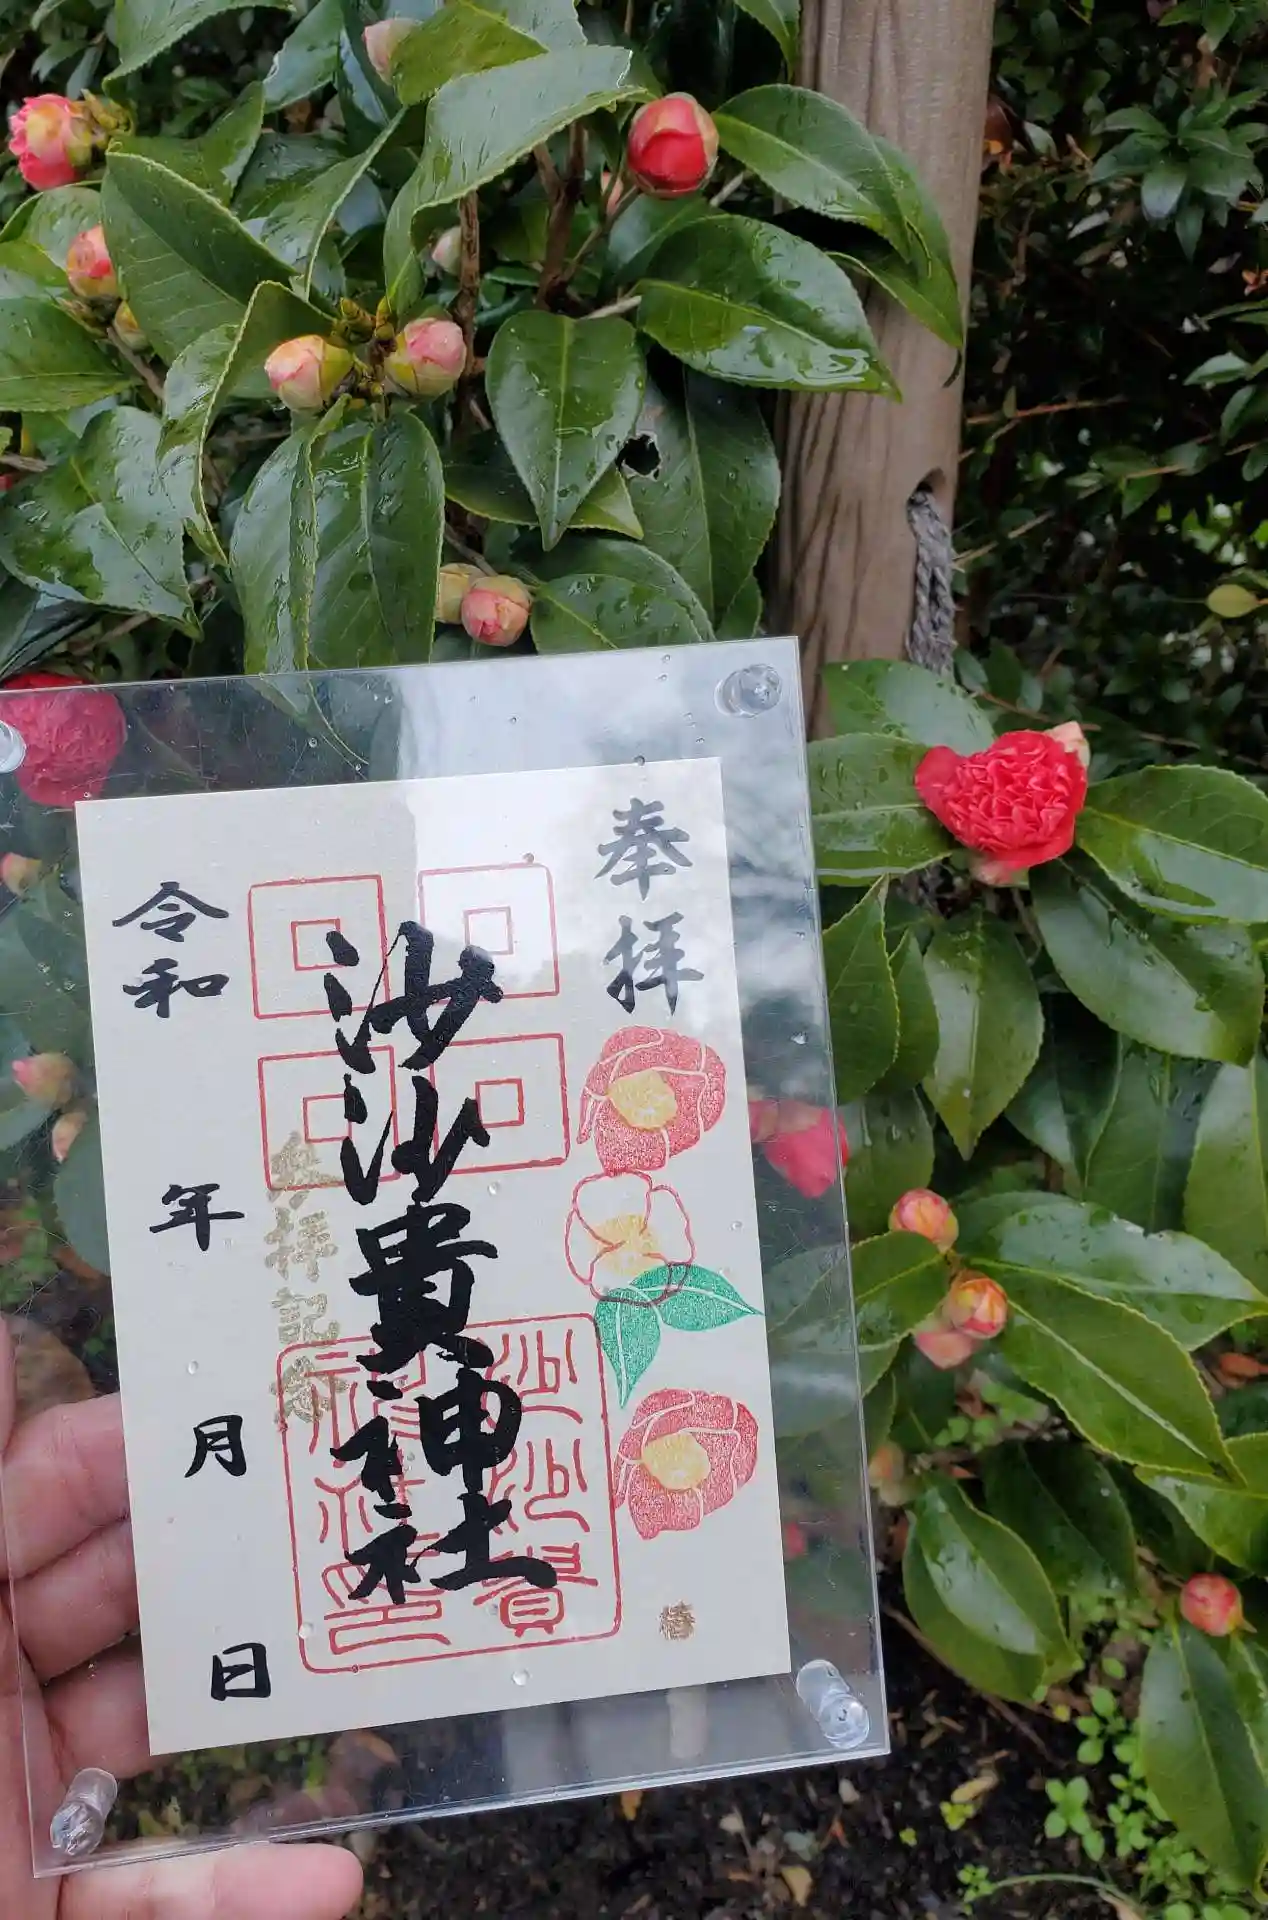 奉拝
沙沙貴神社
沙沙貴
神社印
参拝記念
令和 年 月 日
椿